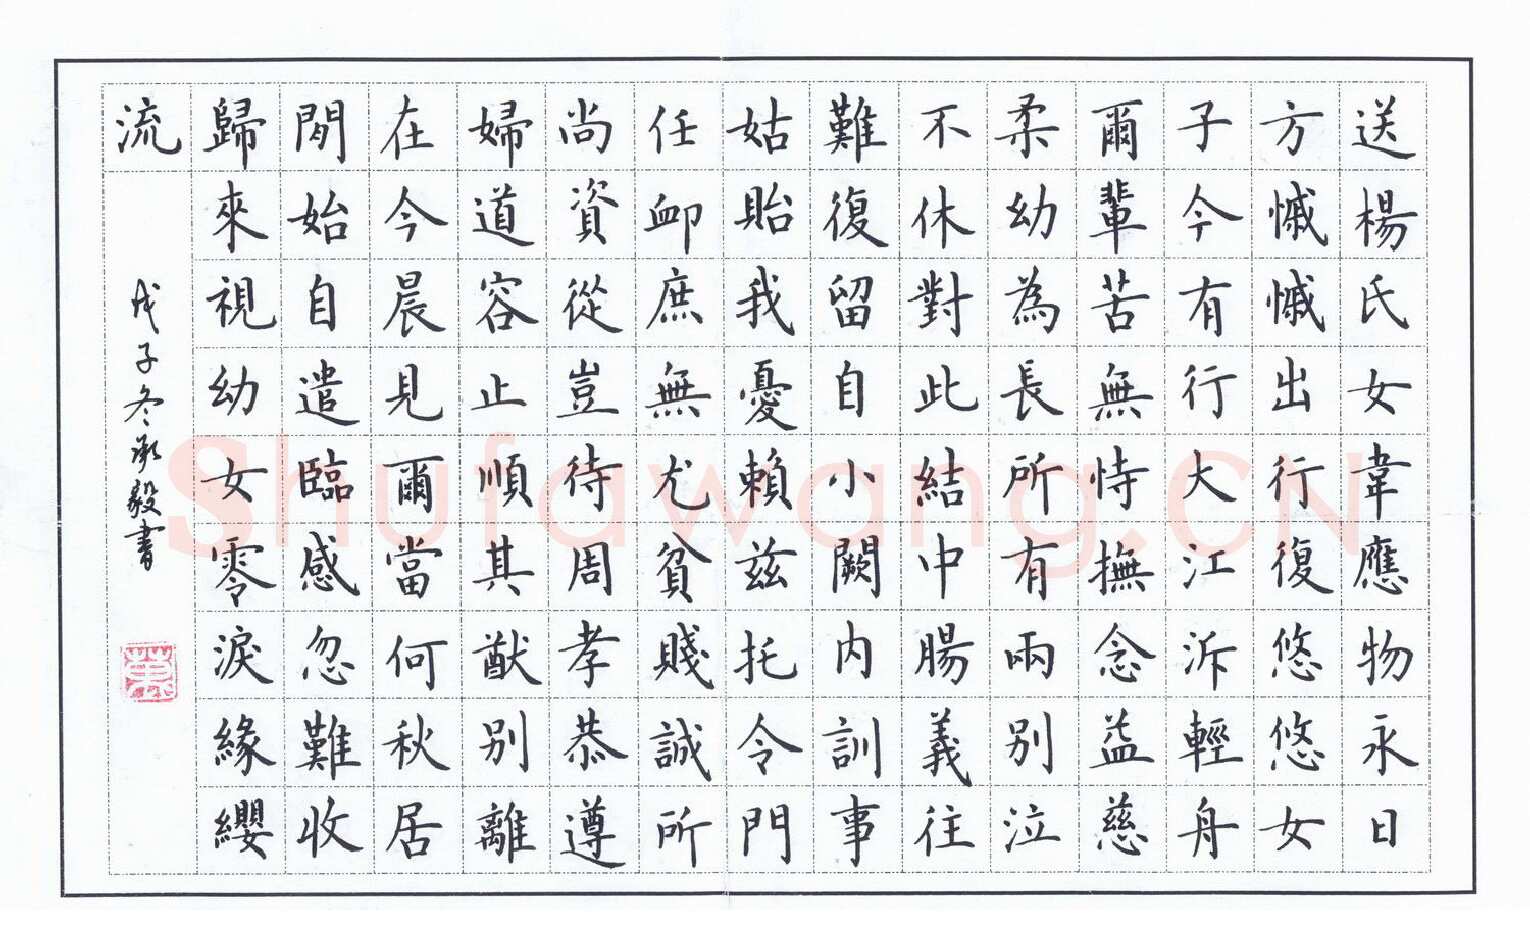 送楊氏女韋應物永日
方慽慽出行復悠悠女
子今有行大江泝輕舟
爾輩苦無恃撫念益慈
柔幼為長所有兩別泣
不休對此結中腸義往
難復留自小闕內訓事
姑貽我憂賴茲托令門
任卹庶無尤貧賤誠所
尚資從豈待周孝恭遵
婦道容止順其猷別離
在今晨見爾當何秋居
閒始自遣臨感忽難收
歸來視幼女零淚緣纓
流
戊子冬承毅書
Shufawang.CN